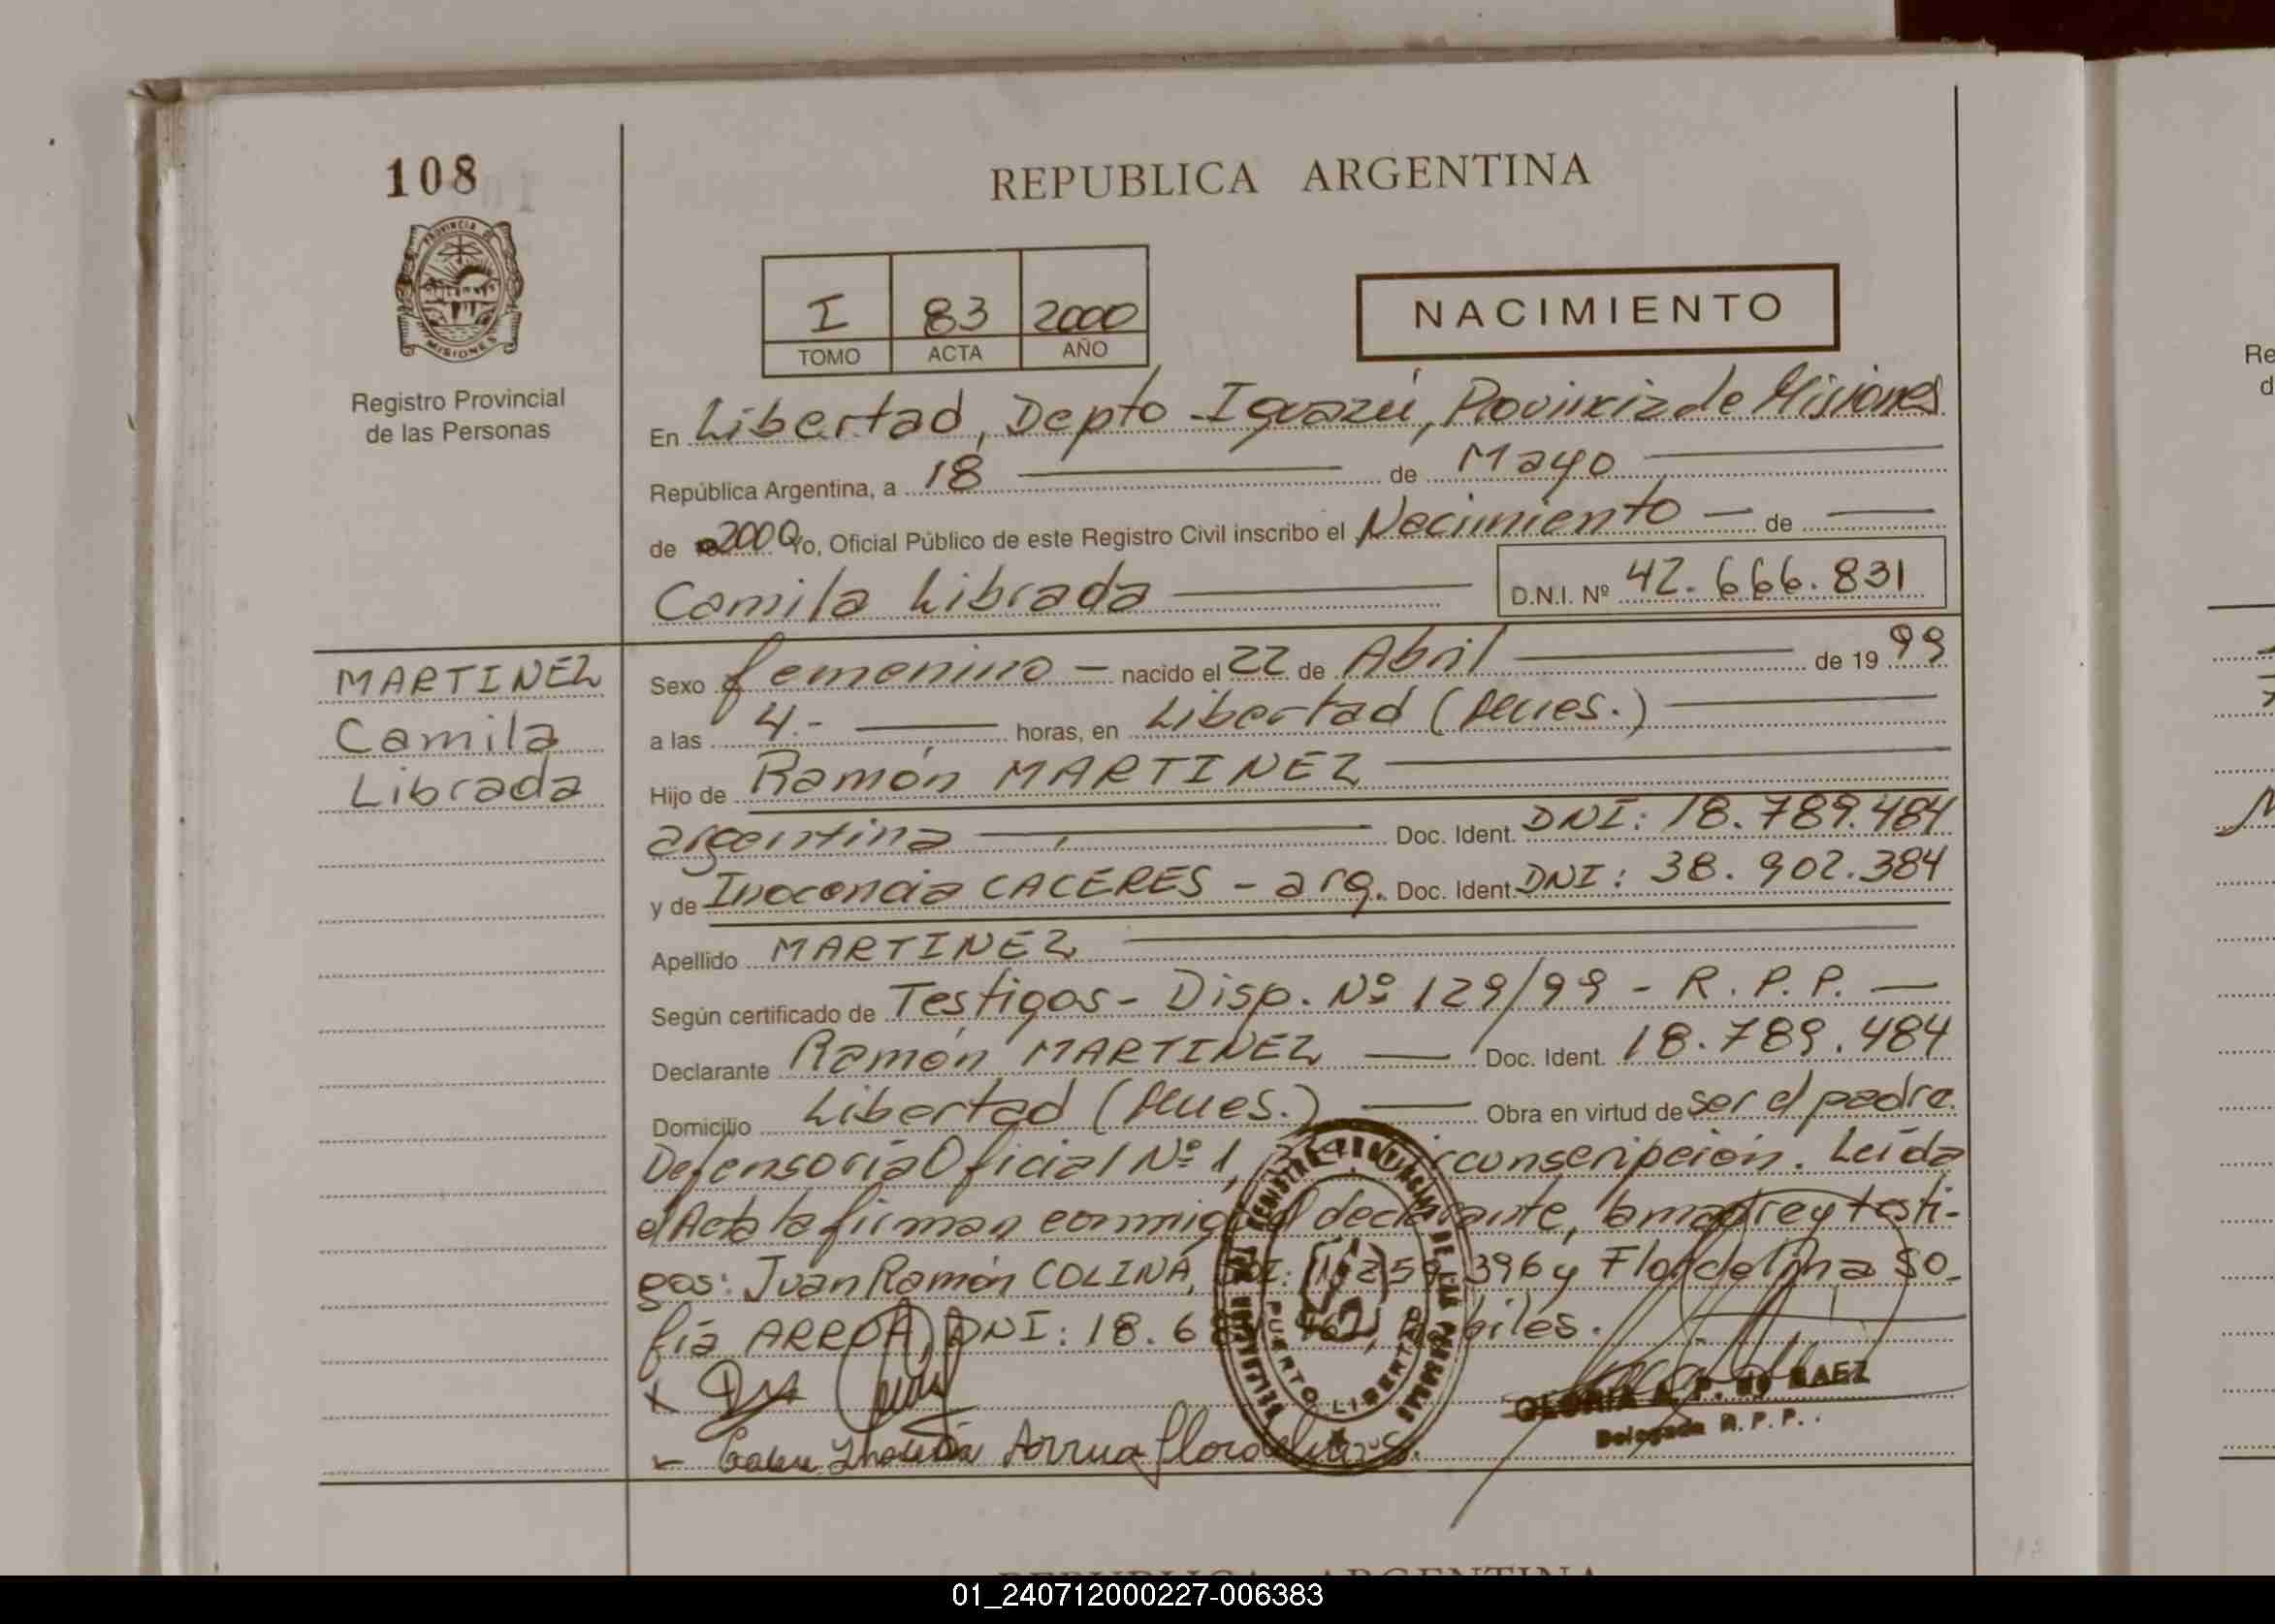 108
REPUBLICA ARGENTINA
PROVINCIA DE
MISIONES
Registro Provincial
de las Personas
I 83 2000
TOMO ACTA AÑO
NACIMIENTO
En Libertad, Depto Iguazú, Provincia de Misiones
República Argentina, a 18 de Mayo
de 2000 Yo, Oficial Público de este Registro Civil inscribo el Nacimiento — de —
Camila Librada D.N.I. Nº 42.666.831
MARTINEZ
Camila
Librada
Sexo femenino — nacido el 22 de Abril de 19 99
a las 4.- horas, en Libertad (Mnes.)
Hijo de Ramón MARTINEZ
argentina Doc. Ident. DNI: 18.789.484
y de Inocencia CACERES - arg. Doc. Ident. DNI: 38.902.384
Apellido MARTINEZ
Según certificado de Testigos - Disp. Nº 129/99 - R.P.P. —
Declarante Ramón MARTINEZ — Doc. Ident. 18.789.484
Domicilio Libertad (Mnes.) — Obra en virtud de ser el padre.
Defensoría Oficial Nº 1, circunscripción. Leída
el Acta la firman conmigo el declarante, la madre y testi-
gos: Juan Ramón COLINA, DNI: 396 y Flordelina So-
fía ARRUA, DNI: 18.6 hábiles.
x
Arrua Flordelina S.
PUERTO LIBERTAD
GLORIA A. P. DE BAEZ
Delegada R.P.P.
REPUBLICA ARGENTINA
Re
d
01_240712000227-006383